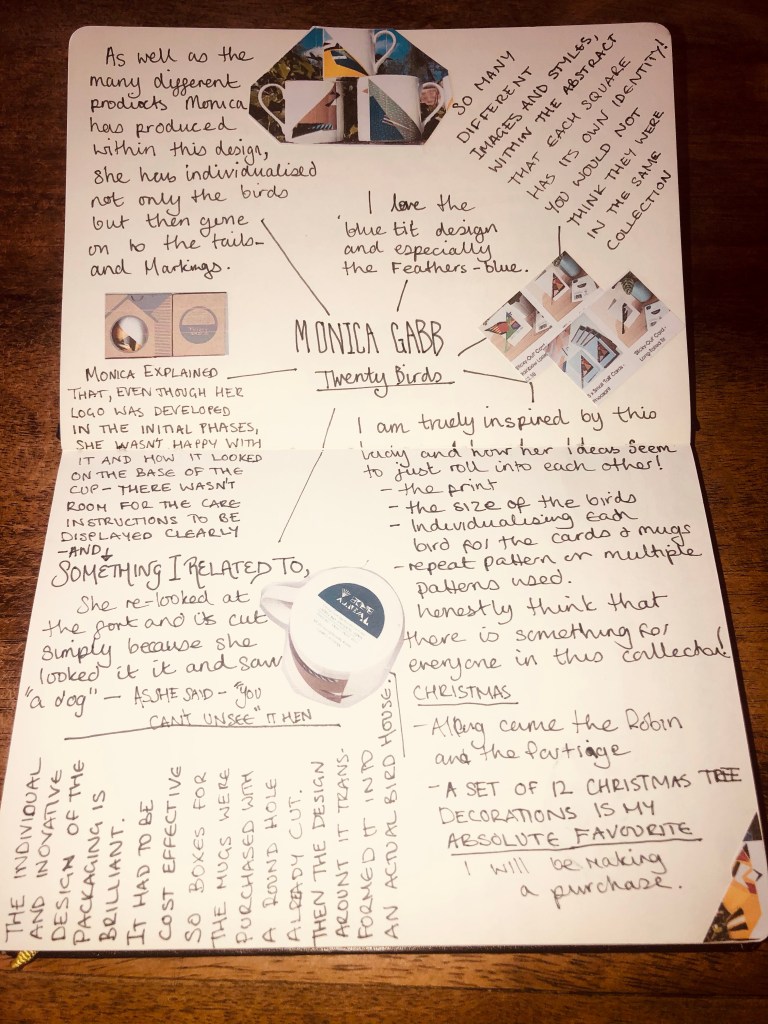 As well as the
many different
products Monica
has produced
within this design,
she has individualised
not only the birds
but then gone
on to the tails-
and Markings.
SO MANY
DIFFERENT
IMAGES AND STYLES,
WITHIN THE ABSTRACT
THAT EACH SQUARE
HAS ITS OWN IDENTITY!
YOU WOULD NOT
THINK THEY WERE
IN THE SAME
COLLECTION
I love the
blue tit design
and especially
the Feathers-blue.
MONICA GABB
Twenty Birds
MONICA EXPLAINED
THAT, EVEN THOUGH HER
LOGO WAS DEVELOPED
IN THE INITIAL PHASES,
SHE WASN'T HAPPY WITH
IT AND HOW IT LOOKED
ON THE BASE OF THE
CUP - THERE WASN'T
ROOM FOR THE CARE
INSTRUCTIONS TO BE
DISPLAYED CLEARLY
-AND↓
SOMETHING I RELATED TO,
She re-looked at
the font and its cut
simply because she
looked it it and saw
"a dog" - AS SHE SAID - "YOU
CAN'T UNSEE" IT THEN
I am truely inspired by this
lady and how her ideas seem
to just roll into each other!
- the print
- the size of the birds
- Individualising each
bird for the cards & mugs
- repeat pattern or multiple
patterns used.
I honestly think that
there is something for
everyone in this collection!
CHRISTMAS
- Along came the Robin
and the Partiage
- A SET OF 12 CHRISTMAS TREE
DECORATIONS IS MY
ABSOLUTE FAVOURITE
I will be making
a purchase.
THE INDIVIDUAL
AND INOVATIVE
DESIGN OF THE
PACKAGING IS
BRILLIANT.
IT HAD TO BE
COST EFFECTIVE
SO BOXES FOR
THE MUGS WERE
PURCHASED WITH
A ROUND HOLE
ALREADY CUT.
THEN THE DESIGN
AROUNT IT TRANS-
FORMED IT INTO
AN ACTUAL BIRD HOUSE.